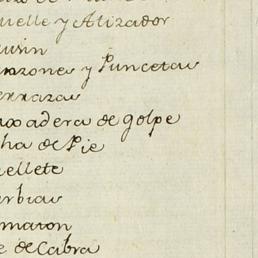 uelle y Atizador
usin
nzones y Puncetas
errazas
axadera de golpe
ha de Pie
ellete
rbias
maron
e de Cabra